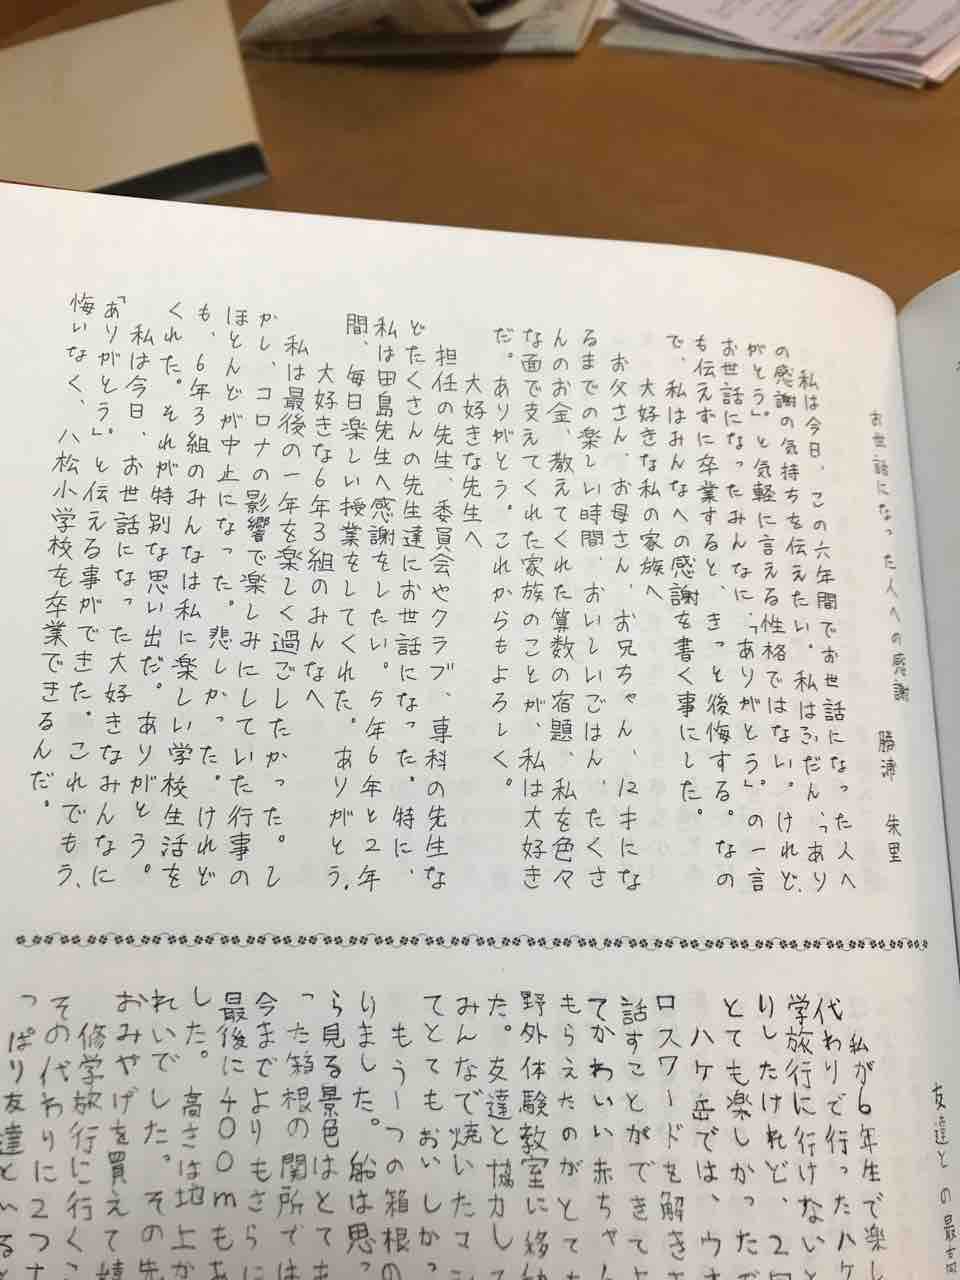 お世話になった人への感謝　勝浦　朱里
私は今日、この六年間でお世話になった人へ
の感謝の気持ちを伝えたい。私はふだん、「あり
がとう。」と気軽に言える性格ではない。けれど、
お世話になったみんなに、「ありがとう。」の一言
も伝えずに卒業すると、きっと後悔する。なの
で、私はみんなへの感謝を書く事にした。
大好きな私の家族へ
お父さん、お母さん、お兄ちゃん、12才にな
るまでの楽しい時間、おいしいごはん、たくさ
んのお金、教えてくれた算数の宿題、私を色々
な面で支えてくれた家族のことが、私は大好き
だ。ありがとう。これからもよろしく。
大好きな先生へ
担任の先生、委員会やクラブ、専科の先生な
どたくさんの先生達にお世話になった。特に、
私は田島先生へ感謝をしたい。5年6年と2年
間、毎日楽しい授業をしてくれた。ありがとう。
大好きな6年3組のみんなへ
私は最後の一年を楽しく過ごしたかった。し
かし、コロナの影響で楽しみにしていた行事の
ほとんどが中止になった。悲しかった。けれど
も、6年3組のみんなは私に楽しい学校生活を
くれた。それが特別な思い出だ。ありがとう。
私は今日、お世話になった大好きなみんなに
「ありがとう。」と伝える事ができた。これでもう、
悔いなく、八松小学校を卒業できるんだ。
友達との最高
私が6年生で楽し
代わりで行ったハケ
学旅行に行けない
りしたけれど、2
とても楽しかった
ハケ岳では、ウ
ロスワードを解き
話すことができて
てかわいい赤ちゃ
もらえたのがとて
野外体験教室に移
た。友達と協力し
みんなで焼いたマ
てとてもおいしか
もう一つの箱根の
りました。船は思っ
ら見る景色はとて
った箱根の関所では
今までよりもさらに
最後に400mもあ
した。高さは地上か
れいでした。その先
おみやげを買えて嬉
修学旅行に行くこ
その代わりに2つ
っぱり友達とい